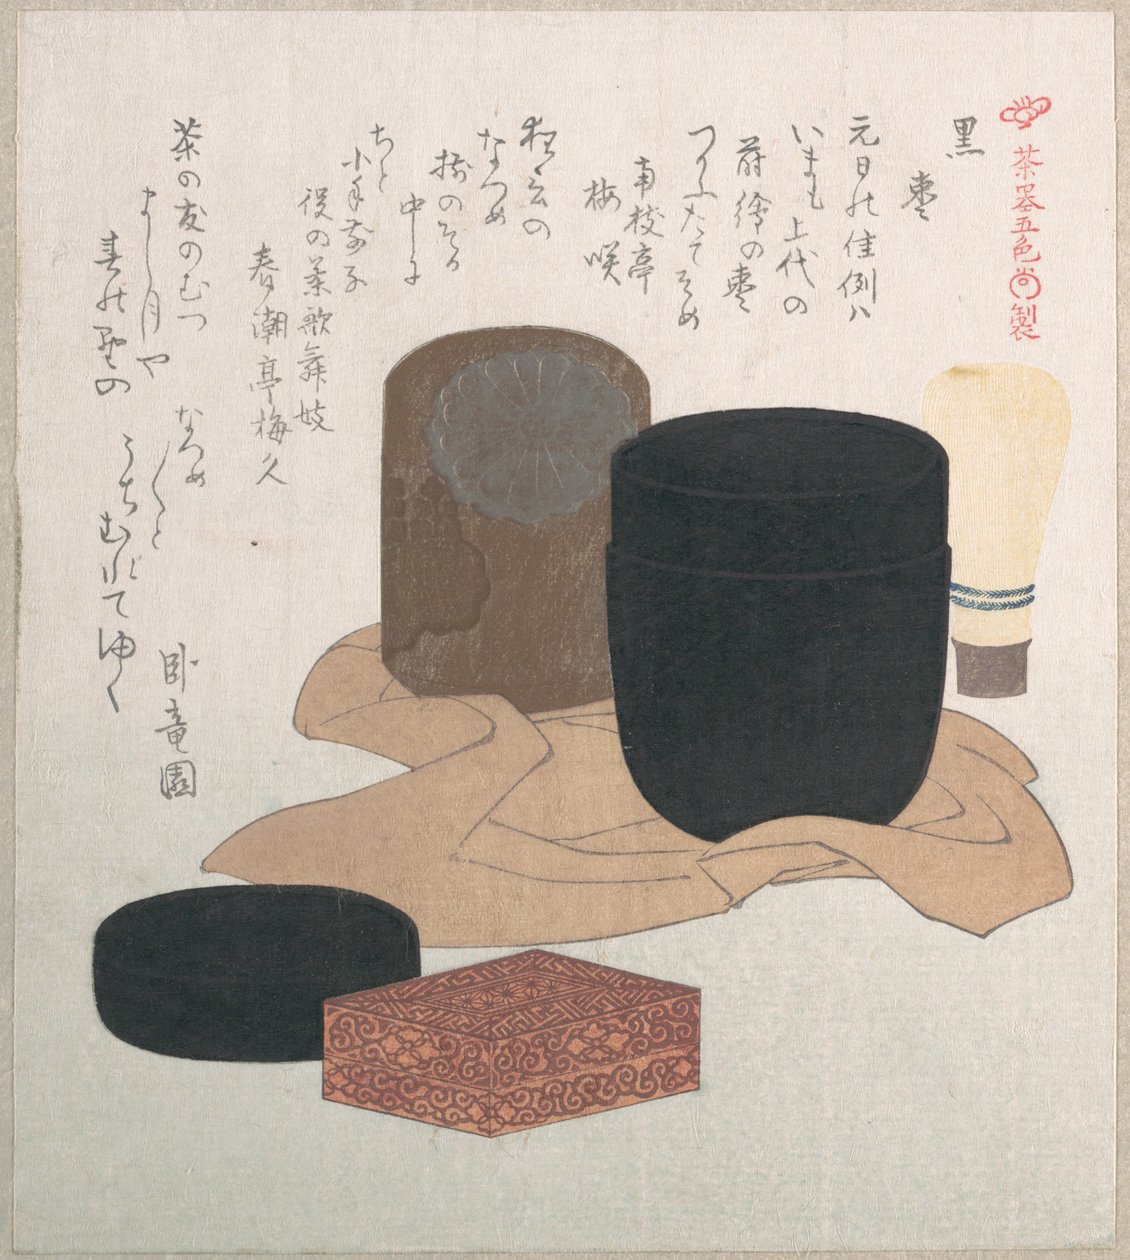 茶器五色 尚製
黒
棗
元日の佳例ハ
いまも上代の
蒔繪の棗
つかふたてそめ
南枝亭
梅咲
狂言の
なつめ
樹のそる
中に
ちと
小手前子
役の茶歌舞妓
春潮亭梅久
茶の友のむつ
ましl月や
なつめ
しくと
春の野の
うちむれてゆく
臥竜園